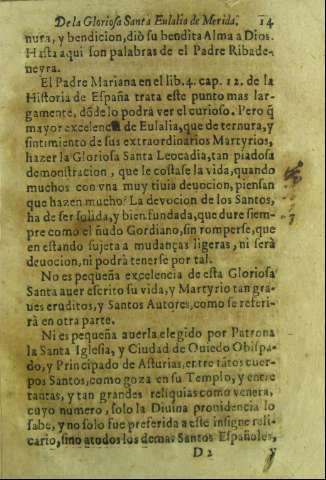 De la Gloriosa Santa Eulalia de Merida. 14
nura, y bendicion, diò su bendita Alma a Dios.
Hasta aqui son palabras de el Padre Ribade-
neyra.
El Padre Mariana en el lib. 4. cap. 12. de la
Historia de España trata este punto mas lar-
gamente, dõde lo podrà ver el curioso. Pero q̃
mayor excelencia de Eulalia, que de ternura, y
sintimiento de sus extraordinarios Martyrios,
hazer la Gloriosa Santa Leocadia, tan piadosa
demonstracion, que le costase la vida, quando
muchos con vna muy tiuia deuocion, piensan
que hazen mucho? La devocion de los Santos,
ha de ser solida, y bien fundada, que dure siem-
pre como el ñudo Gordiano, sin romperse, que
en estando sujeta a mudanças ligeras, ni serà
deuocion, ni podrà tenerse por tal.
No es pequeña excelencia de esta Gloriosa
Santa auer escrito su vida, y Martyrio tan gra-
ues eruditos, y Santos Autores, como se referi-
rà en otra parte.
Ni es pequeña auerla elegido por Patrona
la Santa Iglesia, y Ciudad de Ouiedo Obispa-
do, y Principado de Asturias, entre tãtos cuer-
pos Santos, como goza en su Templo, y entre
tantas, y tan grandes reliquias como venera,
cuyo numero, solo la Diuina prouidencia lo
sabe, y no solo fue preferida a este insigne reli-
cario, sino atodos los demas Santos Españoles,
D 2 y